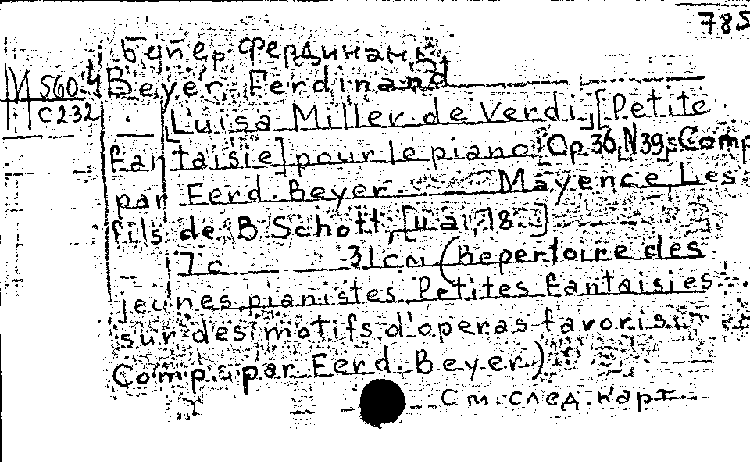 785
Бейер Фердинанд
М 560-4 Beyer Ferdinand
C232 Luisa Miller de Verdi, [Petite
fantaisie] pour le piano Op.36, N39, Comp
par Ferd. Beyer. Mayence Les
fils de B Schott, [u ai, 18..]
7 c 31 см (Repertoire des
jeunes pianistes Petites fantaisies
sur des motifs d'operas favoris
Comp. par Ferd. Beyer)
См. след. карт